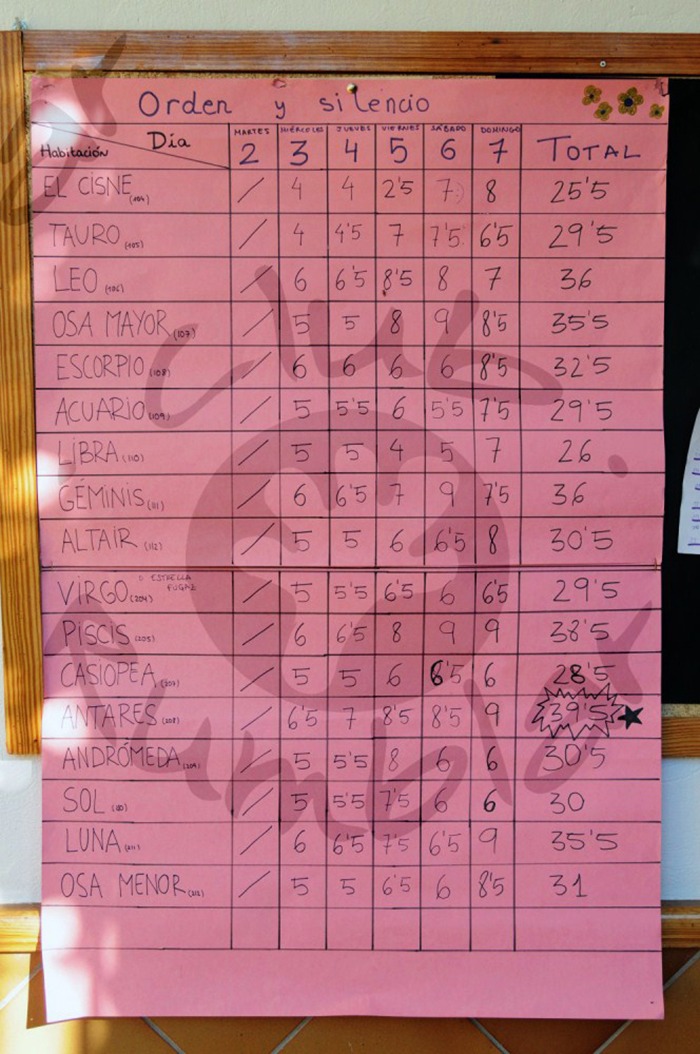 Orden y silencio
Habitación Día MARTES 2 MIÉRCOLES 3 JUEVES 4 VIERNES 5 SÁBADO 6 DOMINGO 7 TOTAL
EL CISNE (104) / 4 4 2'5 7 8 25'5
TAURO (105) / 4 4'5 7 7'5 6'5 29'5
LEO (106) / 6 6'5 8'5 8 7 36
OSA MAYOR (107) / 5 5 8 9 8'5 35'5
ESCORPIO (108) / 6 6 6 6 8'5 32'5
ACUARIO (109) / 5 5'5 6 5'5 7'5 29'5
LIBRA (110) / 5 5 4 5 7 26
GÉMINIS (111) / 6 6'5 7 9 7'5 36
ALTAIR (112) / 5 5 6 6'5 8 30'5
VIRGO (204) O ESTRELLA FUGAZ / 5 5'5 6'5 6 6'5 29'5
PISCIS (205) / 6 6'5 8 9 9 38'5
CASIOPEA (207) / 5 5 6 6'5 6 28'5
ANTARES (208) / 6'5 7 8'5 8'5 9 39'5
ANDRÓMEDA (209) / 5 5'5 8 6 6 30'5
SOL / 5 5'5 7'5 6 6 30
LUNA (211) / 6 6'5 7'5 6'5 9 35'5
OSA MENOR (212) / 5 5 6'5 6 8'5 31
club
Rumblar